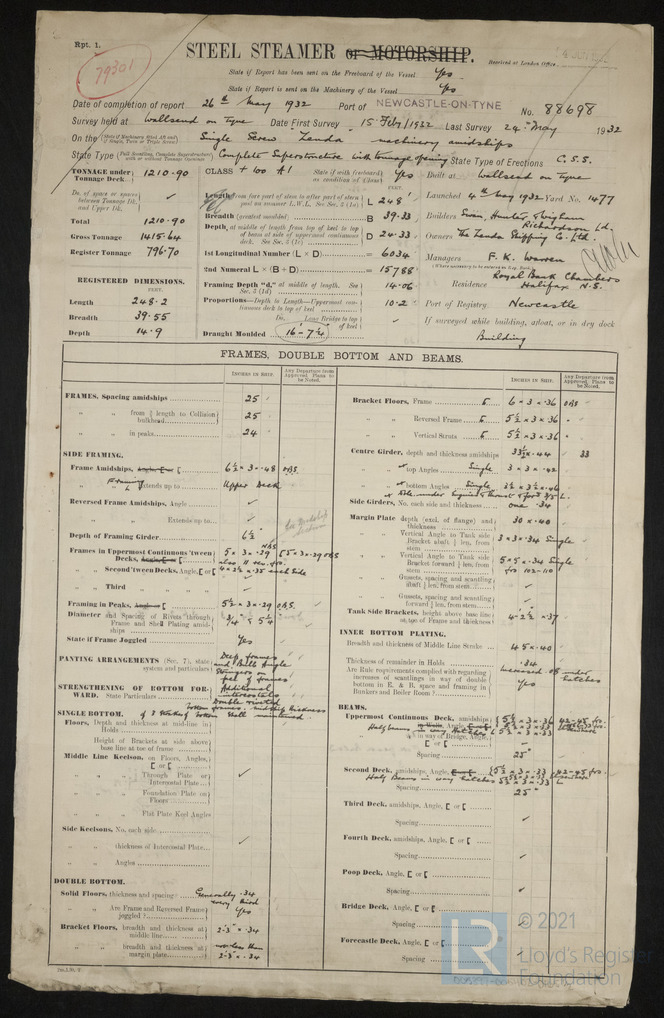 Rpt. 1.
79301
STEEL STEAMER or MOTORSHIP.
Received at London Office
State if Report has been sent on the Freeboard of the Vessel Yes
State if Report is sent on the Machinery of the Vessel Yes
Date of completion of report 26th May 1932 Port of NEWCASTLE-ON-TYNE No. 88698
Survey held at Wallsend on Tyne Date First Survey 15 Feby/1932 Last Survey 24th May 1932
On the Single Screw Zenda machinery amidships
State Type Complete Superstructure with tonnage opening State Type of Erections C.S.S.
TONNAGE under Tonnage Deck 1210.90
CLASS + 100 A1 State if with freeboard as condition of Class Yes
Built at Wallsend on Tyne
Do. of space or spaces between Tonnage Dk. and Upper Dk.
Total 1210.90
Gross Tonnage 1415.64
Register Tonnage 796.70
REGISTERED DIMENSIONS.
FEET.
Length 248.2
Breadth 39.55
Depth 14.9
L 248'
Breadth (greatest moulded) B 39.33
D 24.33
1st Longitudinal Number (L × D) = 6034
2nd Numeral L × (B + D) = 15788
Framing Depth "d," at middle of length. See Sec. 3 (1d) 14.06
Proportions—Depth to Length—Uppermost continuous deck to top of keel 10.2
Do. Long Bridge to top of keel
Draught Moulded 16'-7¼"
Launched 4th May 1932 Yard No. 1477
Builders Swan, Hunter & Wigham Richardson Ld.
Owners The Zenda Shipping Co. Ltd.
Managers F. K. Warren
Residence Royal Bank Chambers Halifax N.S.
Port of Registry Newcastle
If surveyed while building, afloat, or in dry dock
Building
FRAMES, DOUBLE BOTTOM AND BEAMS.
INCHES IN SHIP.
Any Departure from Approved Plans to be Noted.
FRAMES, Spacing amidships 25
" " from ⅗ length to Collision bulkhead 25
" " in peaks 24
SIDE FRAMING.
Frame Amidships, 6½ × 3 × .48 OBS.
" " Extends up to Upper Deck
Reversed Frame Amidships, Angle
" " Extends up to
Depth of Framing Girder 6½"
Frames in Uppermost Continuous 'tween Decks, 5 × 3 × .39 [ 5 × 3 × .29 OBS
" " Second 'tween Decks, Angle, [ or [
" " Third " " " "
Framing in Peaks, 5½ × 3 × .29 OBS.
Diameter and Spacing of Rivets through Frame and Shell Plating amidships ¾ 5¼
State if Frame Joggled Yes
PANTING ARRANGEMENTS (Sec. 7), state system and particulars Deep frames and Bulb Angle Stringers on
STRENGTHENING OF BOTTOM FORWARD. State Particulars Additional intercostals Double riveted
SINGLE BOTTOM.
Floors, Depth and thickness at mid-line in Holds
Height of Brackets at side above base line at toe of frame
Middle Line Keelson, on Floors, Angles, [ or [
" " Through Plate or Intercostal Plate
" " Foundation Plate on Floors
" " Flat Plate Keel Angles
Side Keelsons, No. each side
" " thickness of Intercostal Plate
" " Angles
DOUBLE BOTTOM.
Solid Floors, thickness and spacing Generally .34 every third
" " Are Frame and Reversed Frame joggled? Yes
Bracket Floors, breadth and thickness at middle line 2'-3" × .34
" " breadth and thickness at margin plate not less than 2'-3" × .34
Bracket Floors, Frame 6 × 3 × .36 OBS
" " Reversed Frame 5½ × 3 × .36 "
" " Vertical Struts 5½ × 3 × .36 "
Centre Girder, depth and thickness amidships 33½ × .44 33
" " top Angles Single 3 × 3 × .42
" " bottom Angles Single 3½ × 3½ × .46
Side Girders, No. each side and thickness one .34
Margin Plate depth (excl. of flange) and thickness 30 × .40
" " Vertical Angle to Tank side Bracket abaft ¼ len. from stem 3 × 3 × .34 Single
" " Vertical Angle to Tank side Bracket forward ¼ len. from stem 5 × 5 × .34 Single
" " Gussets, spacing and scantling abaft ¼ len. from stem
" " Gussets, spacing and scantling forward ¼ len. from stem
Tank Side Brackets, height above base line at toe of Frame and thickness 4'-2½" × .37
INNER BOTTOM PLATING.
Breadth and thickness of Middle Line Strake 45 × .40
Thickness of remainder in Holds .34
Are Rule requirements complied with regarding increase of scantlings in way of double bottom in E. & B. space and framing in Bunkers and Boiler Room? Yes
BEAMS.
Uppermost Continuous Deck, amidships 5½ × 3 × .36
" " in way of Bridge, Angle, [ or [
Spacing 25"
Second Deck, amidships, Angle, 5½ × 3 × .33
Half Beams in way hatches
Spacing 25"
Third Deck, amidships, Angle, [ or [
Spacing
Fourth Deck, amidships, Angle, [ or [
Spacing
Poop Deck, Angle, [ or [
Spacing
Bridge Deck, Angle, [ or [
Spacing
Forecastle Deck, Angle, [ or [
Spacing
LR
© 2021
Lloyd's Register
Foundation